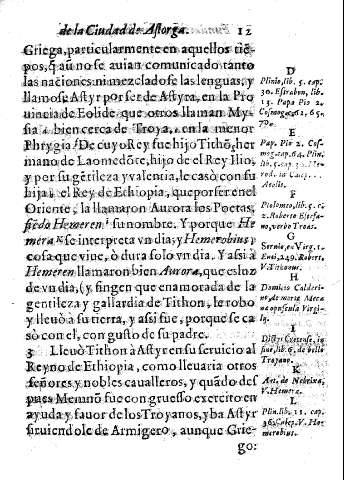 de la Ciudad de Astorga. 12
Griega, particularmente en aquellos tiẽ-
pos, q̃ aũ no se auian comunicado tanto
las naciones ni mezcladose las lenguas, y
llamose Astyr por ser de Astyra, en la Pro
uincia de Eolide que otros llaman My-
sia a bien cerca de Troya, en la menor
Phrygia. De cuyo Rey fue hijo Tithõ, her
mano de Laomedõte, hijo de el Rey Ilio,
y por su gẽtileza y valentia, le casò con su
hija el Rey de Ethiopia, que por ser en el
Oriente, la llamaron Aurora los Poetas,
siẽdo Hemeren su nombre. Y porque He
mera se interpreta vn dia; y Hemerobius
cosa que viue, ò dura solo vn dia. Y assi à
Hemeren llamaron bien Aurora, que es luz
de vn dia, (y fingen que enamorada de la
gentileza y gallardia de Tithon, le robo
y lleuò a su tierra, y assi fue, porque se ca
sò con el, con gusto de su padre.
3 Lleuò Tithòn à Astyr en su seruicio al
Reyno de Ethiopia, como lleuaria otros
señores y nobles caualleros, y quãdo des
pues Menõn fue con gruesso exercito en
ayuda y fauor de los Troyanos, yba Astyr
siruiendole de Armigero, aunque Grie-
go:
D
Plinio, lib. 5. cap:
30. Estrabon, lib.
13. Papa Pio 2.
Cosmog. ca. 62. 65.
70.
E
Pap. Pio 2. Cos-
mog. cap. 64. Plin.
lib. 5. cap. 30.
Aeolis.
F
Ptolomeo, lib. 5. c.
2. Roberto Estefa-
no, verbo Troas.
G
Seruio, ex Virg. 1.
Enei, 249. Robert.
V. Tithonus.
H
Domicio Calderi-
no, de morte Meca
na opuscula Virgi-
lij.
I
Dictys Cretense, in
fine, lib. 6. de bello
Troyano.
K
Ant. de Nebrixa,
V. Hemera.
L
Plin. lib. 11. cap.
36. Calep. V. He-
merobius.